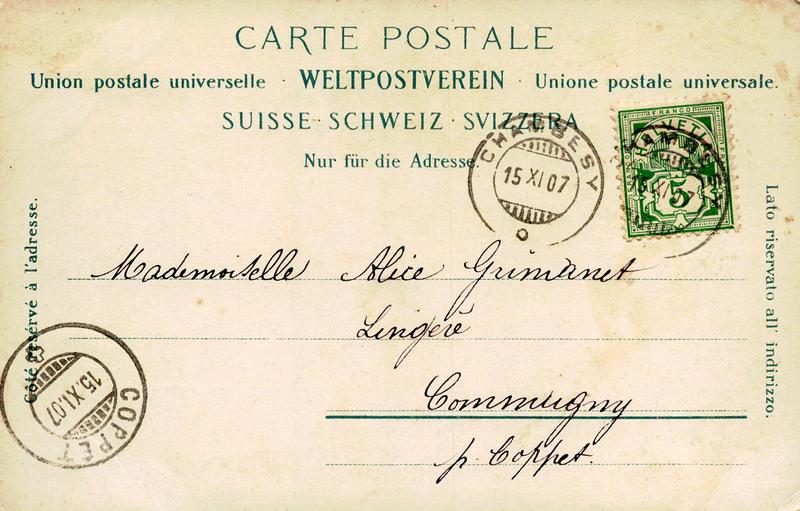 CARTE POSTALE
Union postale universelle · WELTPOSTVEREIN · Unione postale universale.
SUISSE · SCHWEIZ · SVIZZERA
Nur für die Adresse.
CHAMBESY
15 XI 07
FRANCO
HELVETIA
5
Côté réservé à l'adresse.
Lato riservato all' indirizzo.
Mademoiselle Alice Grimanet
Lingère
Commugny
p. Coppet.
15.XI.07
COPPET